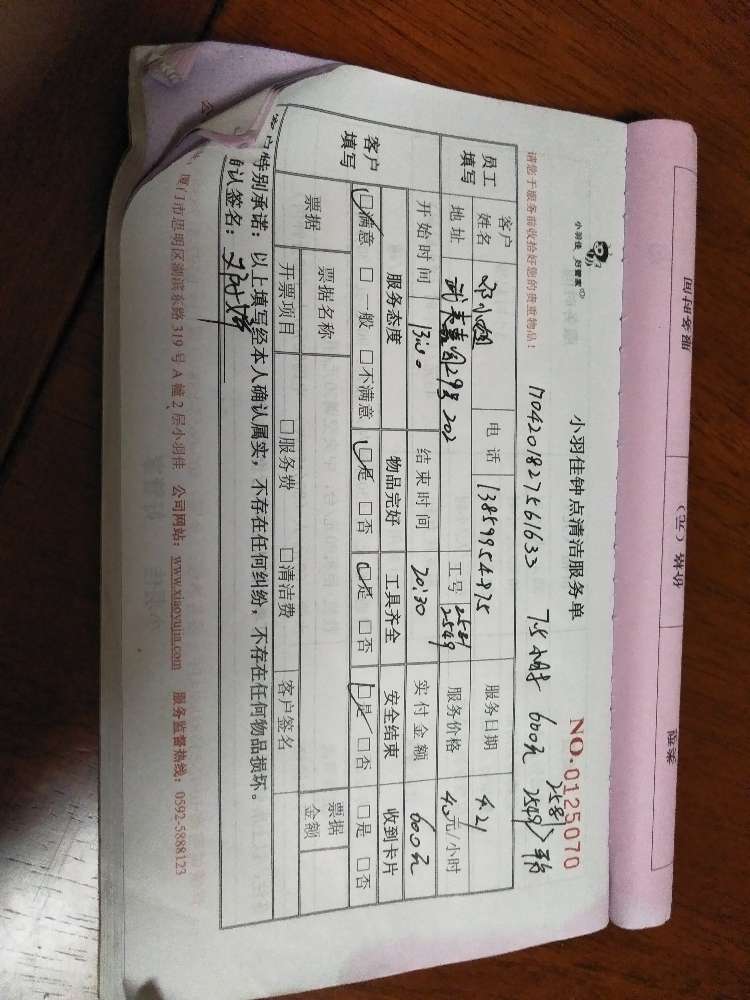 小羽佳 好管家
小羽佳钟点清洁服务单
NO.0125070
170420182756 1633 7.5小时 600元 2581 2549
请您于服务前收拾好您的贵重物品!
员工填写 客户姓名 邓小姐 电话 13859954975 服务日期 4.21
地址 武夷嘉园29号202 工号 2581 2549 服务价格 40元/小时
开始时间 13:00 结束时间 20:30 实付金额 600元
客户填写 服务态度 物品完好 工具齐全 安全结束 收到卡片
□满意 □一般 □不满意 □是 □否 □是 □否 □是 □否 □是 □否
票据 票据名称 票据金额
开票项目 □服务费 □清洁费 客户签名
特别承诺:以上填写经本人确认属实,不存在任何纠纷,不存在任何物品损坏。
认签名:
厦门市思明区湖滨东路319号A幢2层小羽佳 公司网站:www.xiaoyujia.com 服务监督热线:0592-5888123